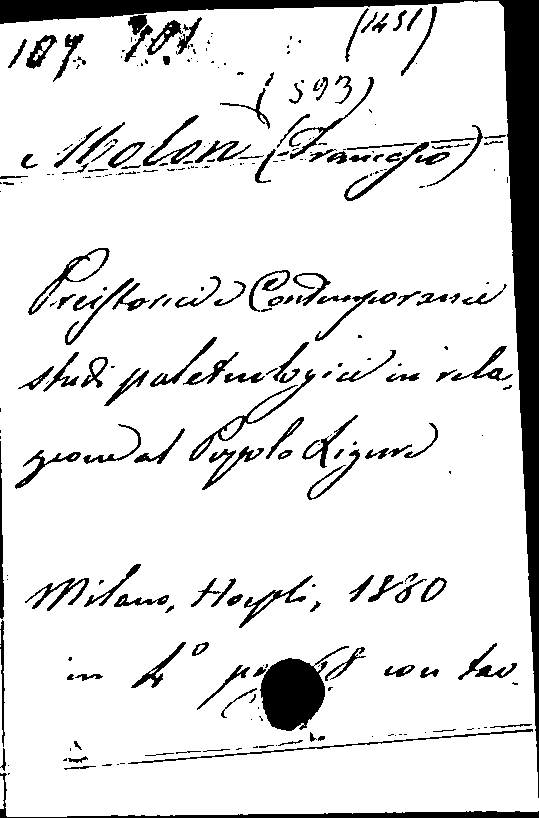 107. 101 (1451)
(593)
Molon (Francesco)
Preistorici e Contemporanei
studi paletnologici in rela-
zione al Popolo Ligure
Milano, Hoepli, 1880
in 4° pag 68 con tav.